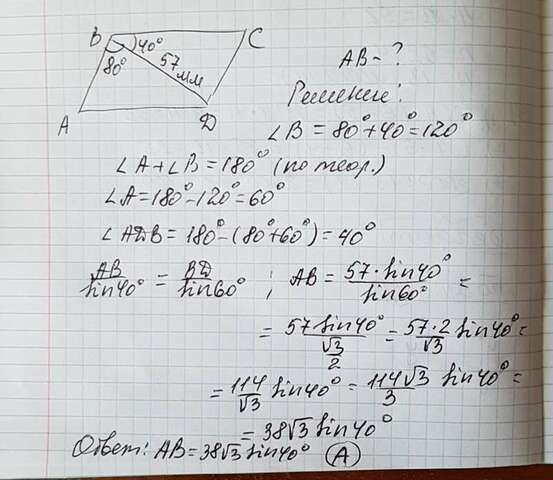 B 40° C
80° 57 мм
A D
AB - ?
Решение:
∠B = 80° + 40° = 120°
∠A + ∠B = 180° (по теор.)
∠A = 180° - 120° = 60°
∠ADB = 180° - (80° + 60°) = 40°
AB/sin40° = BD/sin60° ; AB = 57 · sin40°/sin60° =
= 57 sin40°/(√3/2) = 57·2/√3 sin40° =
= 114/√3 sin40° = 114√3/3 sin40° =
= 38√3 sin40°
Ответ: AB = 38√3 sin40° (A)